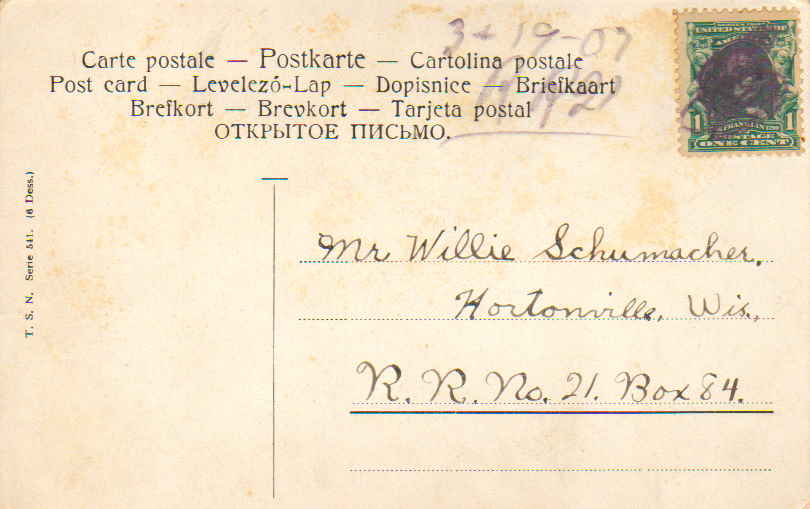 3-19-07
Carte postale — Postkarte — Cartolina postale
Post card — Levelező-Lap — Dopisnice — Briefkaart
Brefkort — Brevkort — Tarjeta postal
ОТКРЫТОЕ ПИСЬМО.
UNITED STATES OF
AMERICA
FRANKLIN
1 1
POSTAGE
ONE CENT
T. S. N. Serie 541. (6 Dess.)
Mr Willie Schumacher,
Hortonville, Wis.,
R. R. No. 21. Box 84.